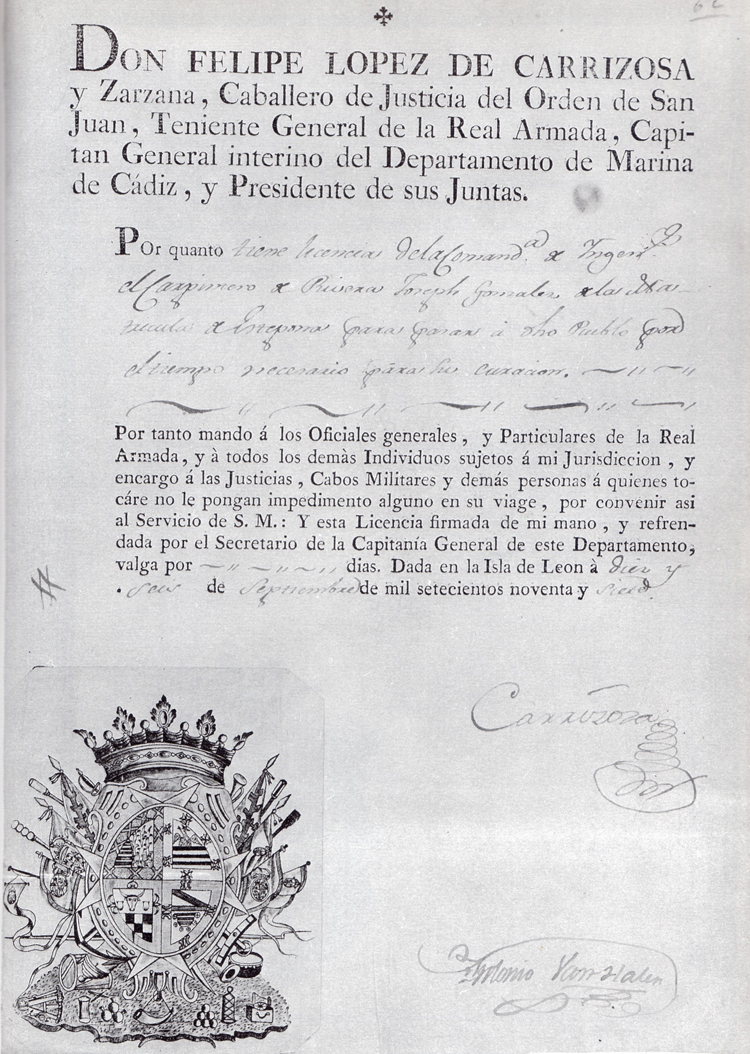 62
DON FELIPE LOPEZ DE CARRIZOSA
y Zarzana, Caballero de Justicia del Orden de San
Juan, Teniente General de la Real Armada, Capi-
tan General interino del Departamento de Marina
de Cádiz, y Presidente de sus Juntas.
POr quanto tiene licencia dela Comand.ª de Ingen.s
el Carpintero de Rivera Joseph Gonzalez de la Ma-
tricula de Estepona para pasar à dho Pueblo por
el tiempo necesario para su curacion.
Por tanto mando á los Oficiales generales, y Particulares de la Real
Armada, y à todos los demàs Individuos sujetos á mi Jurisdiccion, y
encargo á las Justicias, Cabos Militares y demás personas á quienes to-
cáre no le pongan impedimento alguno en su viage, por convenir asi
al Servicio de S. M.: Y esta Licencia firmada de mi mano, y refren-
dada por el Secretario de la Capitanía General de este Departamento,
valga por dias. Dada en la Isla de Leon à diez y
seis de Septiembre de mil setecientos noventa y siete.
Carrizosa
Antonio Van Halen